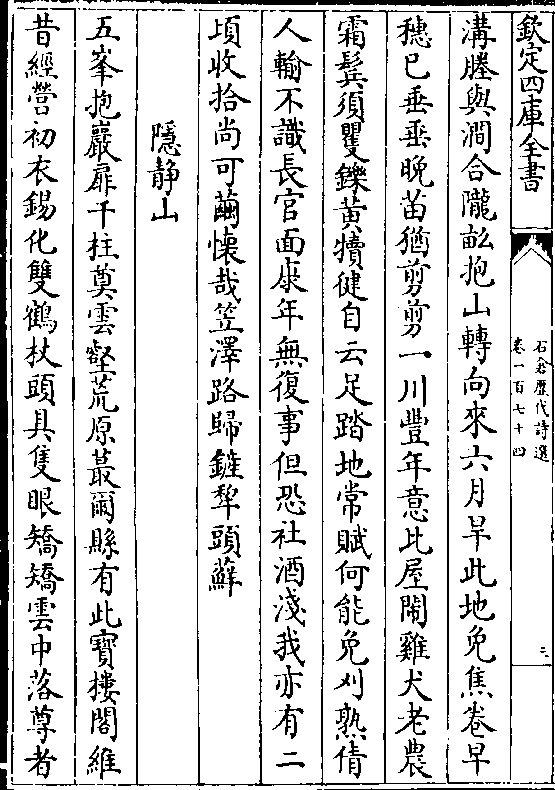 欽定四庫全書
石倉歷代詩選
卷一百七十四
三
溝塍與澗合隴畝抱山轉向來六月旱此地免焦卷早
穗已垂垂晚苗猶剪剪一川豐年意比屋鬧雞犬老農
霜鬂須矍鑠黄犢健自云足踏地常賦何能免刈熟倩
人輸不識長官面康年無復事但恐社酒淺我亦有二
頃收拾尚可繭懷哉笠澤路歸鏟犂頭蘚
隱静山
五峯抱巖扉千柱奠雲壑荒原蕞爾縣有此寶樓閣維
昔經營初衣錫化雙鶴杖頭具隻眼矯矯雲中落尊者